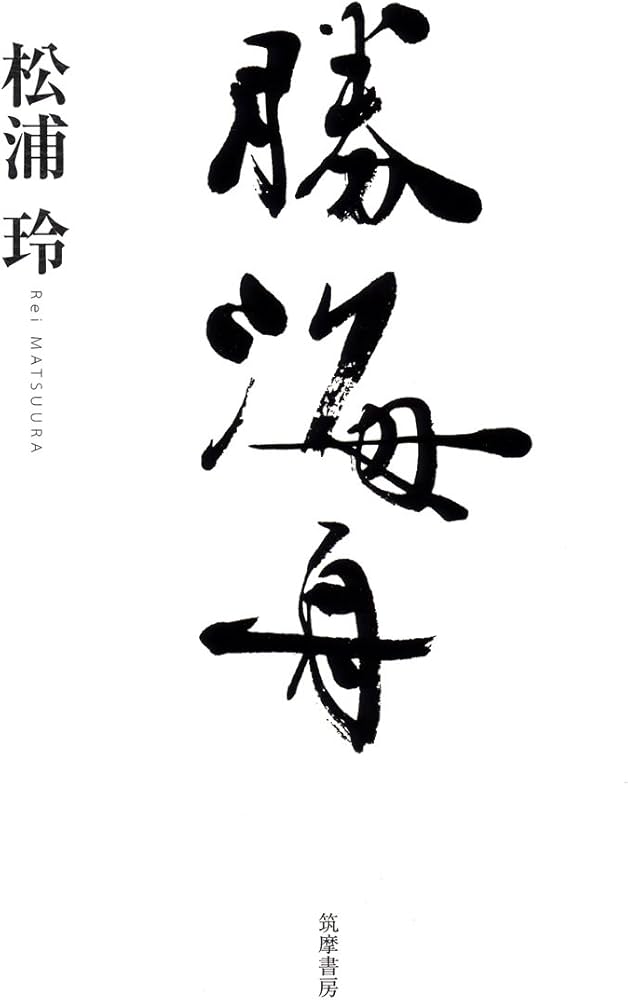 勝海舟
松浦 玲
Rei MATSUURA
筑摩書房